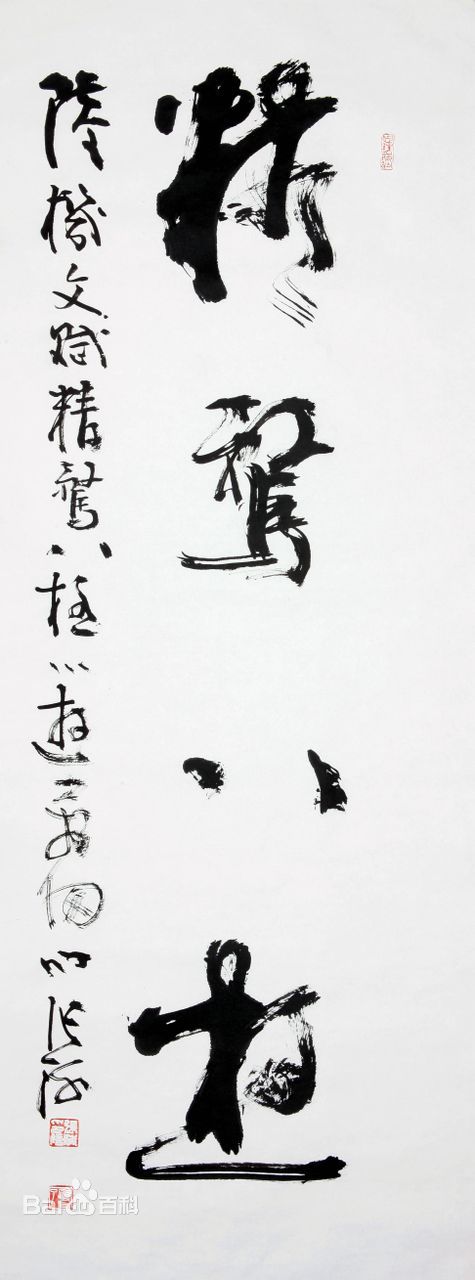 精騖八極
陸機文賦精騖八極心遊
Baidu百科